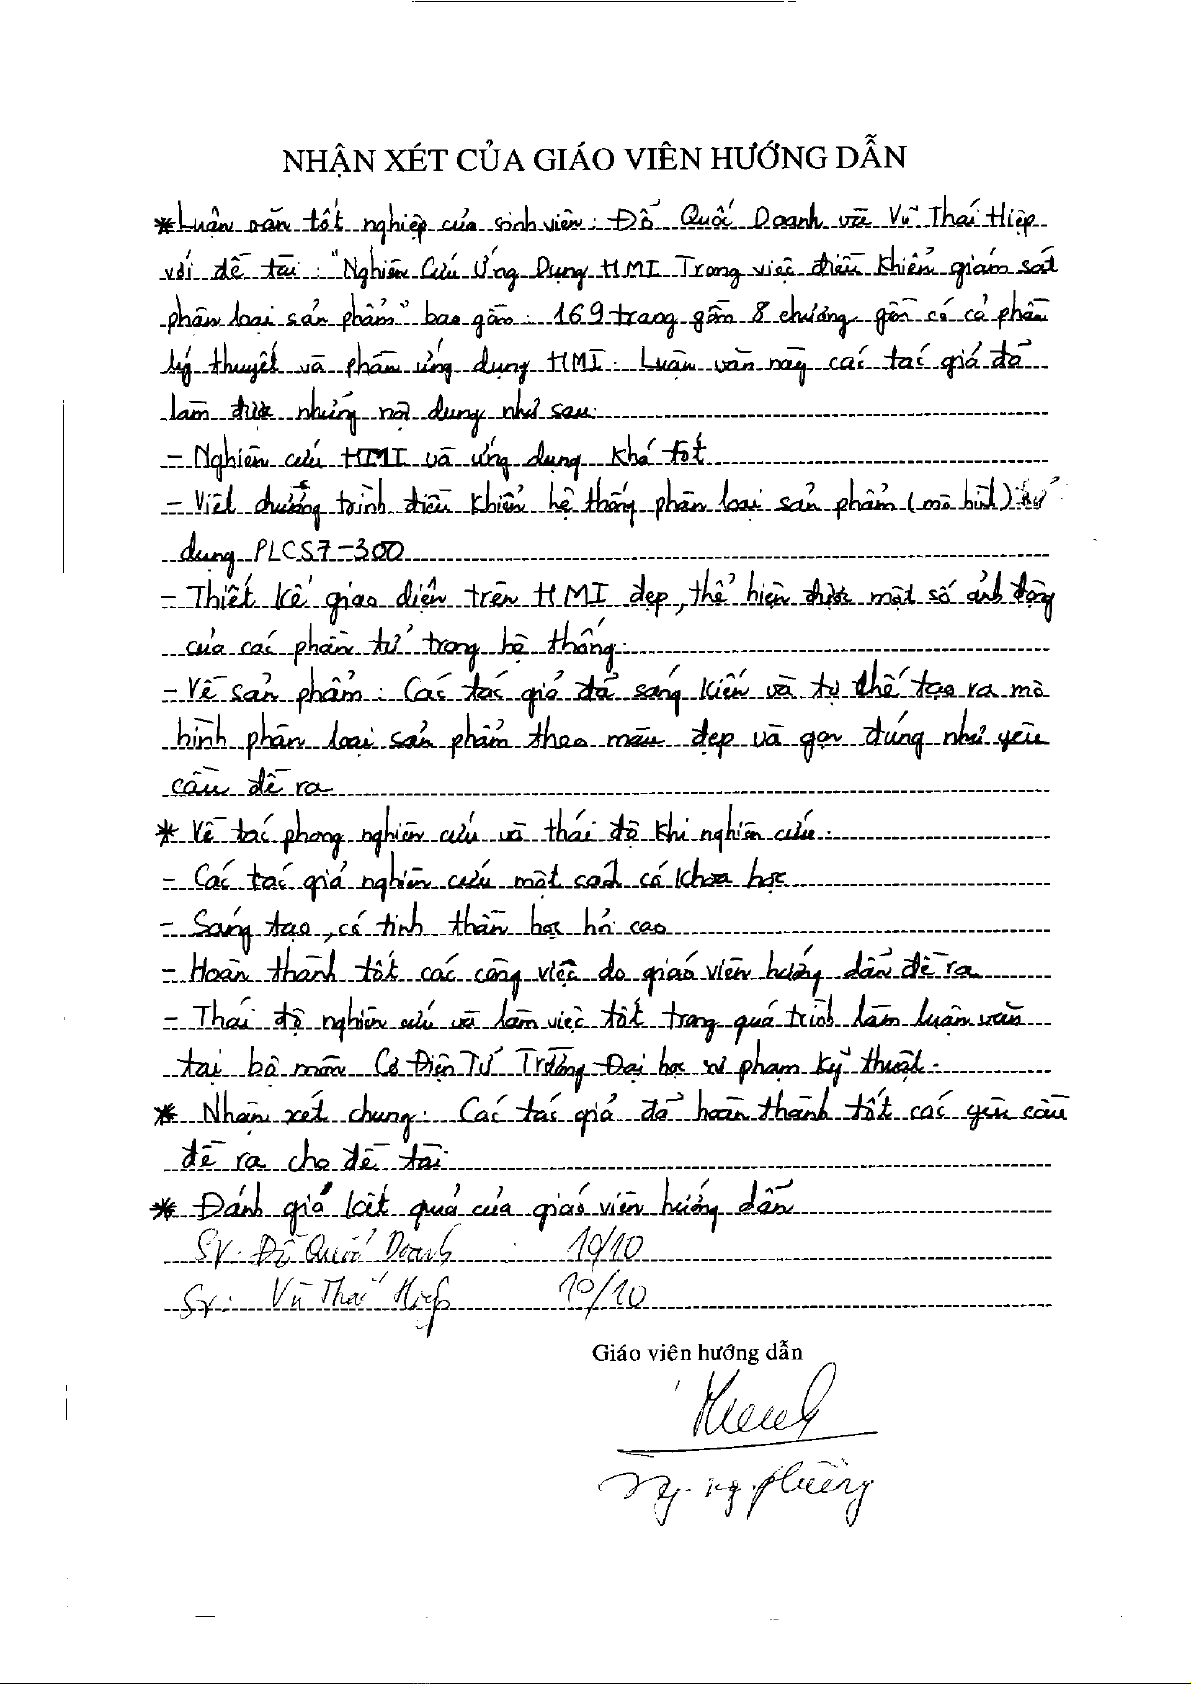 NHẬN XÉT CỦA GIÁO VIÊN HƯỚNG DẪN
* Luận văn tốt nghiệp của sinh viên: Đỗ Quốc Doanh và Vũ Thái Hiệp
với đề tài: "Nghiên Cứu Ứng Dụng HMI Trong việc điều khiển giám sát
phân loại sản phẩm" bao gồm: 169 trang gồm 8 chương, gồm có cả phần
lý thuyết và phần ứng dụng HMI. Luận văn này các tác giả đã
làm được những nội dung như sau:
- Nghiên cứu HMI và ứng dụng khá tốt
- Viết chương trình điều khiển hệ thống phân loại sản phẩm (mô hình) sử
dụng PLCS7-300
- Thiết kế giao diện trên HMI đẹp, thể hiện được một số ảnh động
của các phần tử trong hệ thống.
- Về sản phẩm: Các tác giả đã sáng kiến và tự chế tạo ra mô
hình phân loại sản phẩm theo màu đẹp và gọn đúng như yêu
cầu đề ra
* Về tác phong nghiên cứu và thái độ khi nghiên cứu:
- Các tác giả nghiên cứu một cách có khoa học
- Sáng tạo, có tinh thần học hỏi cao
- Hoàn thành tốt các công việc do giáo viên hướng dẫn đề ra
- Thái độ nghiên cứu và làm việc tốt trong quá trình làm luận văn
tại bộ môn Cơ Điện Tử Trường Đại học sư phạm Kỹ thuật.
* Nhận xét chung: Các tác giả đã hoàn thành tốt các yêu cầu
đề ra cho đề tài
* Đánh giá kết quả của giáo viên hướng dẫn
SV: Đỗ Quốc Doanh : 10/10
SV: Vũ Thái Hiệp 10/10
Giáo viên hướng dẫn